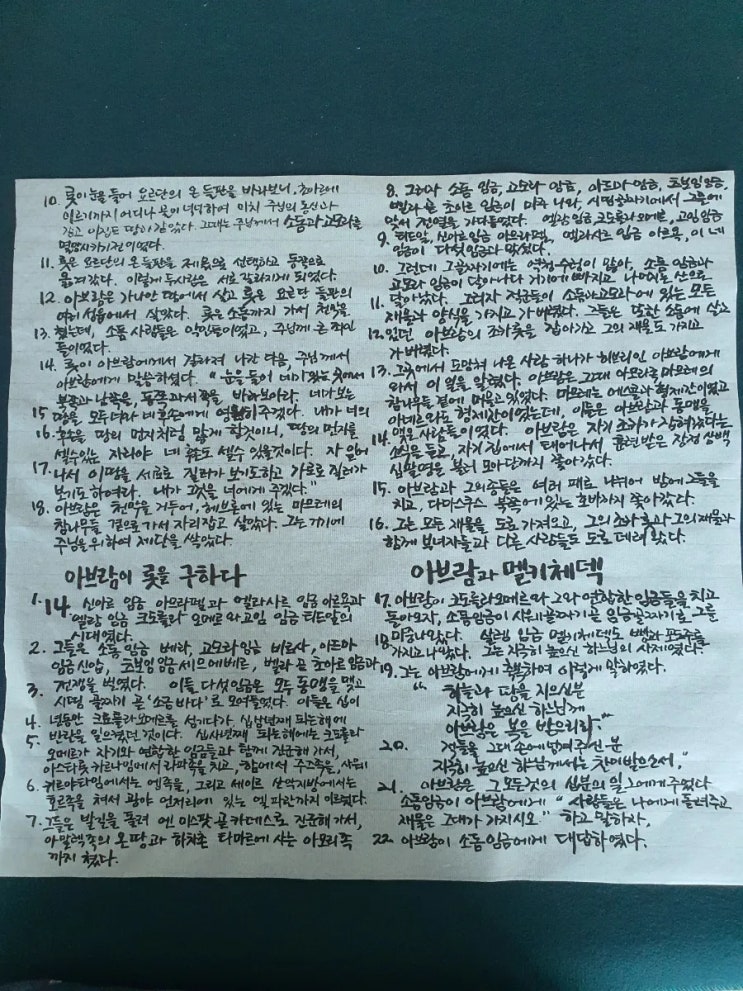 10. 롯이 눈을 들어 요르단의 온 들판을 바라보니, 초아르에
이르기까지 어디나 물이 넉넉하여 마치 주님의 동산과
같고 이집트 땅과 같았다. 그때는 주님께서 소돔과 고모라를
멸망시키기 전이었다.
11. 롯은 요르단의 온 들판을 제 몫으로 선택하고 동쪽으로
옮겨갔다. 이렇게 두사람은 서로 갈라지게 되었다.
12. 아브람은 가나안 땅에서 살고 롯은 요르단 들판의
여러 성읍에서 살았다. 롯은 소돔까지 가서 천막을
13. 쳤는데, 소돔 사람들은 악인들이었고, 주님께 큰 죄인
들이었다.
14. 롯이 아브람에게서 갈라져 나간 다음, 주님께서
아브람에게 말씀하셨다. "눈을 들어 네가 있는 곳에서
북쪽과 남쪽을, 동쪽과 서쪽을 바라보아라. 네가 보는
15. 땅을 모두 너와 네 후손에게 영원히 주겠다. 내가 너의
16. 후손을 땅의 먼지처럼 많게 할것이니, 땅의 먼지를
셀수 있는 자라야 네 후손도 셀수 있을 것이다. 자 일어
17. 나서 이땅을 세로로 질러가 보기도하고 가로로 질러가
보기도 하여라. 내가 그것을 너에게 주겠다."
18. 아브람은 천막을 거두어, 헤브론에 있는 마므레의
참나무들 곁으로 가서 자리잡고 살았다. 그는 거기에
주님을 위하여 제단을 쌓았다.
아브람이 롯을 구하다
1. 14. 신아르 임금 아므라펠과 엘라사르 임금 아르욕과
엘람 임금 크도를라오메르와 고임 임금 티드알의
시대였다.
2. 그들은 소돔 임금 베라, 고모라 임금 비르사, 아드마
임금 신압, 츠보임 임금 세므에베르, 벨라 곧 초아르 임금과
3. 전쟁을 벌였다. 이들 다섯임금은 모두 동맹을 맺고
시띰 골짜기 곧 '소금 바다'로 모여들었다. 이들은 십이
4. 년동안 크도를라오메르를 섬기다가, 십삼년째 되는해에
5. 반란을 일으켰던 것이다. 십사년째 되는해에는 크도를라
오메르가 자기와 연합한 임금들과 함께 진군해 가서,
아스타롯 카르나임에서 라파족을 치고, 함에서 주즈족을, 사웨
6. 키르야타임에서는 엠족을, 그리고 세이르 산악지방에서는
호르족을 쳐서 광야 언저리에 있는 엘 파란까지 이르렀다.
7. 그들은 발길을 돌려 엔 미스팟 곧 카데스로 진군해 가서,
아말렉족의 온 땅과 하차촌 타마르에 사는 아모리족
까지 쳤다.
8. 그러자 소돔 임금, 고모라 임금, 아드마 임금, 츠보임 임금,
벨라 곧 초아르 임금이 마주 나와, 시띰 골짜기에서 그들에
맞서 전열을 가다듬었다. 엘람 임금 크도를라오메르, 고임 임금
9. 티드알, 신아르 임금 아므라펠, 엘라사르 임금 아르욕, 이 네
임금이 다섯 임금과 맞섰다.
10. 그런데 그 골짜기에는 역청 수렁이 많아, 소돔 임금과
고모라 임금이 달아나다 거기에 빠지고 나머지는 산으로
11. 달아났다. 그러자 적군들이 소돔과 고모라에 있는 모든
재물과 양식을 가지고 가버렸다. 그들은 또한 소돔에 살고
12. 있던 아브람의 조카 롯을 잡아가고 그의 재물도 가지고
가버렸다.
13. 그곳에서 도망쳐 나온 사람 하나가 히브리인 아브람에게
와서 이 일을 알렸다. 아브람은 그때 아모리족 마므레의
참나무들 곁에 머물고 있었다. 마므레는 에스콜과 형제간이었고
아네르와도 형제간이었는데, 이들은 아브람과 동맹을
맺은 사람들이었다. 아브람은 자기 조카가 잡혀갔다는
14. 소식을 듣고, 자기 집에서 태어나서 훈련 받은 장정 삼백
십팔명을 불러 모아 단까지 쫓아갔다.
15. 아브람과 그의 종들은 여러 패로 나뉘어 밤에 그들을
치고, 다마스쿠스 북쪽에 있는 호바까지 쫓아갔다.
16. 그는 모든 재물을 도로 가져오고, 그의 조카 롯과 그의 재물과
함께 부녀자들과 다른 사람들도 도로 데려 왔다.
아브람과 멜키체덱
17. 아브람이 크도를라오메르와 그와 연합한 임금들을 치고
돌아오자, 소돔 임금이 사웨 골짜기 곧 임금 골짜기로 그를
18. 마중나왔다. 살렘 임금 멜키체덱도 빵과 포도주를
가지고 나왔다. 그는 지극히 높으신 하느님의 사제였다.
19. 그는 아브람에게 축복하며 이렇게 말하였다.
"하늘과 땅을 지으신분
지극히 높으신 하느님께
아브람은 복을 받으리라
20. 적들을 그대 손에 넘겨주신 분
지극히 높으신 하느님께서는 찬미받으소서."
21. 아브람은 그 모든것의 십분의 일을 그에게 주었다
소돔임금이 아브람에게 "사람들은 나에게 돌려주고
재물은 그대가 가지시오" 하고 말하자,
22. 아브람이 소돔 임금에게 대답하였다.